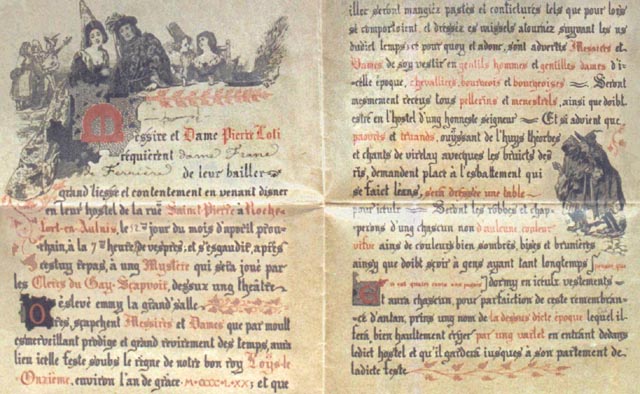 Messire et Dame Pierre Loti
requièrent dame Franc
de Ferrière de leur bailler
grand liesse et contentement en venant disner
en leur hostel de la rue Sainct Pierre à Roche-
fort-en-Aulnis, le 12me jour du mois d'apvril prou-
chain, à la 7me heure de vespres, et s'esgaudir, après
cestuy repas, à ung Mystère qui sera joué par
les Clercs du Gay-Sçapvoir, dessux ung théâtre
eslevé emmy la grand'salle
Ores, sçapchent Messires et Dames que par moult
esmerveillant prodige et grand revirement des temps, aura
lieu icelle feste soubs le règne de notre bon roy Loys-le-
Onzième, environ l'an de grâce M·CCCC·LXX; et que
iller seront mangiez pastés et confictures tels que pour lors
se comportoient, et dressez es vaissels atournez suyvant les us
dudict temps; et pour quoy et adonc, sont advertis Messires et
Dames de soy vestir en gentils hommes et gentilles dames d'i-
celle époque, chevalliers, bourgeois et bourgeoises Seront
mesmement receus tous pellerins et menestrels, ainsi que doibt
estre en l'hostel d'ung honneste seigneur Et si advient que
pauvres et truands, ouyssant de l'huys théorbes
et chants de virelay avecques les bruicts des
ris, demandent place à l'esbattement qui
se faict léans, sera dressée une table
pour iceulx Seront les robbes et chap-
perons d'ung chascun non d'aulcune couleur
vifve ains de couleurs bien sombres, bises et brunierès
ainsy que doibt seoir à gens ayant tant longtemps
dormy en iceulx vestements
Et aura chascun, pour parfaiction de ceste remembran-
ce d'antan, prins ung nom de la dessus dicte époque lequel il
fera bien haultement crier par ung varlet en entrant dedans
ledict hostel et qu'il gardera jusques à son partement de
ladicte feste